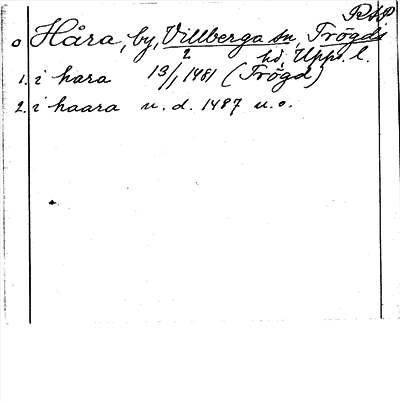 o Håra, by, Villberga sn, Trögds
hd, Uppl.
1. i hara 13/1 1481 (Trögd)
2. i haara u. d. 1487 u. o.